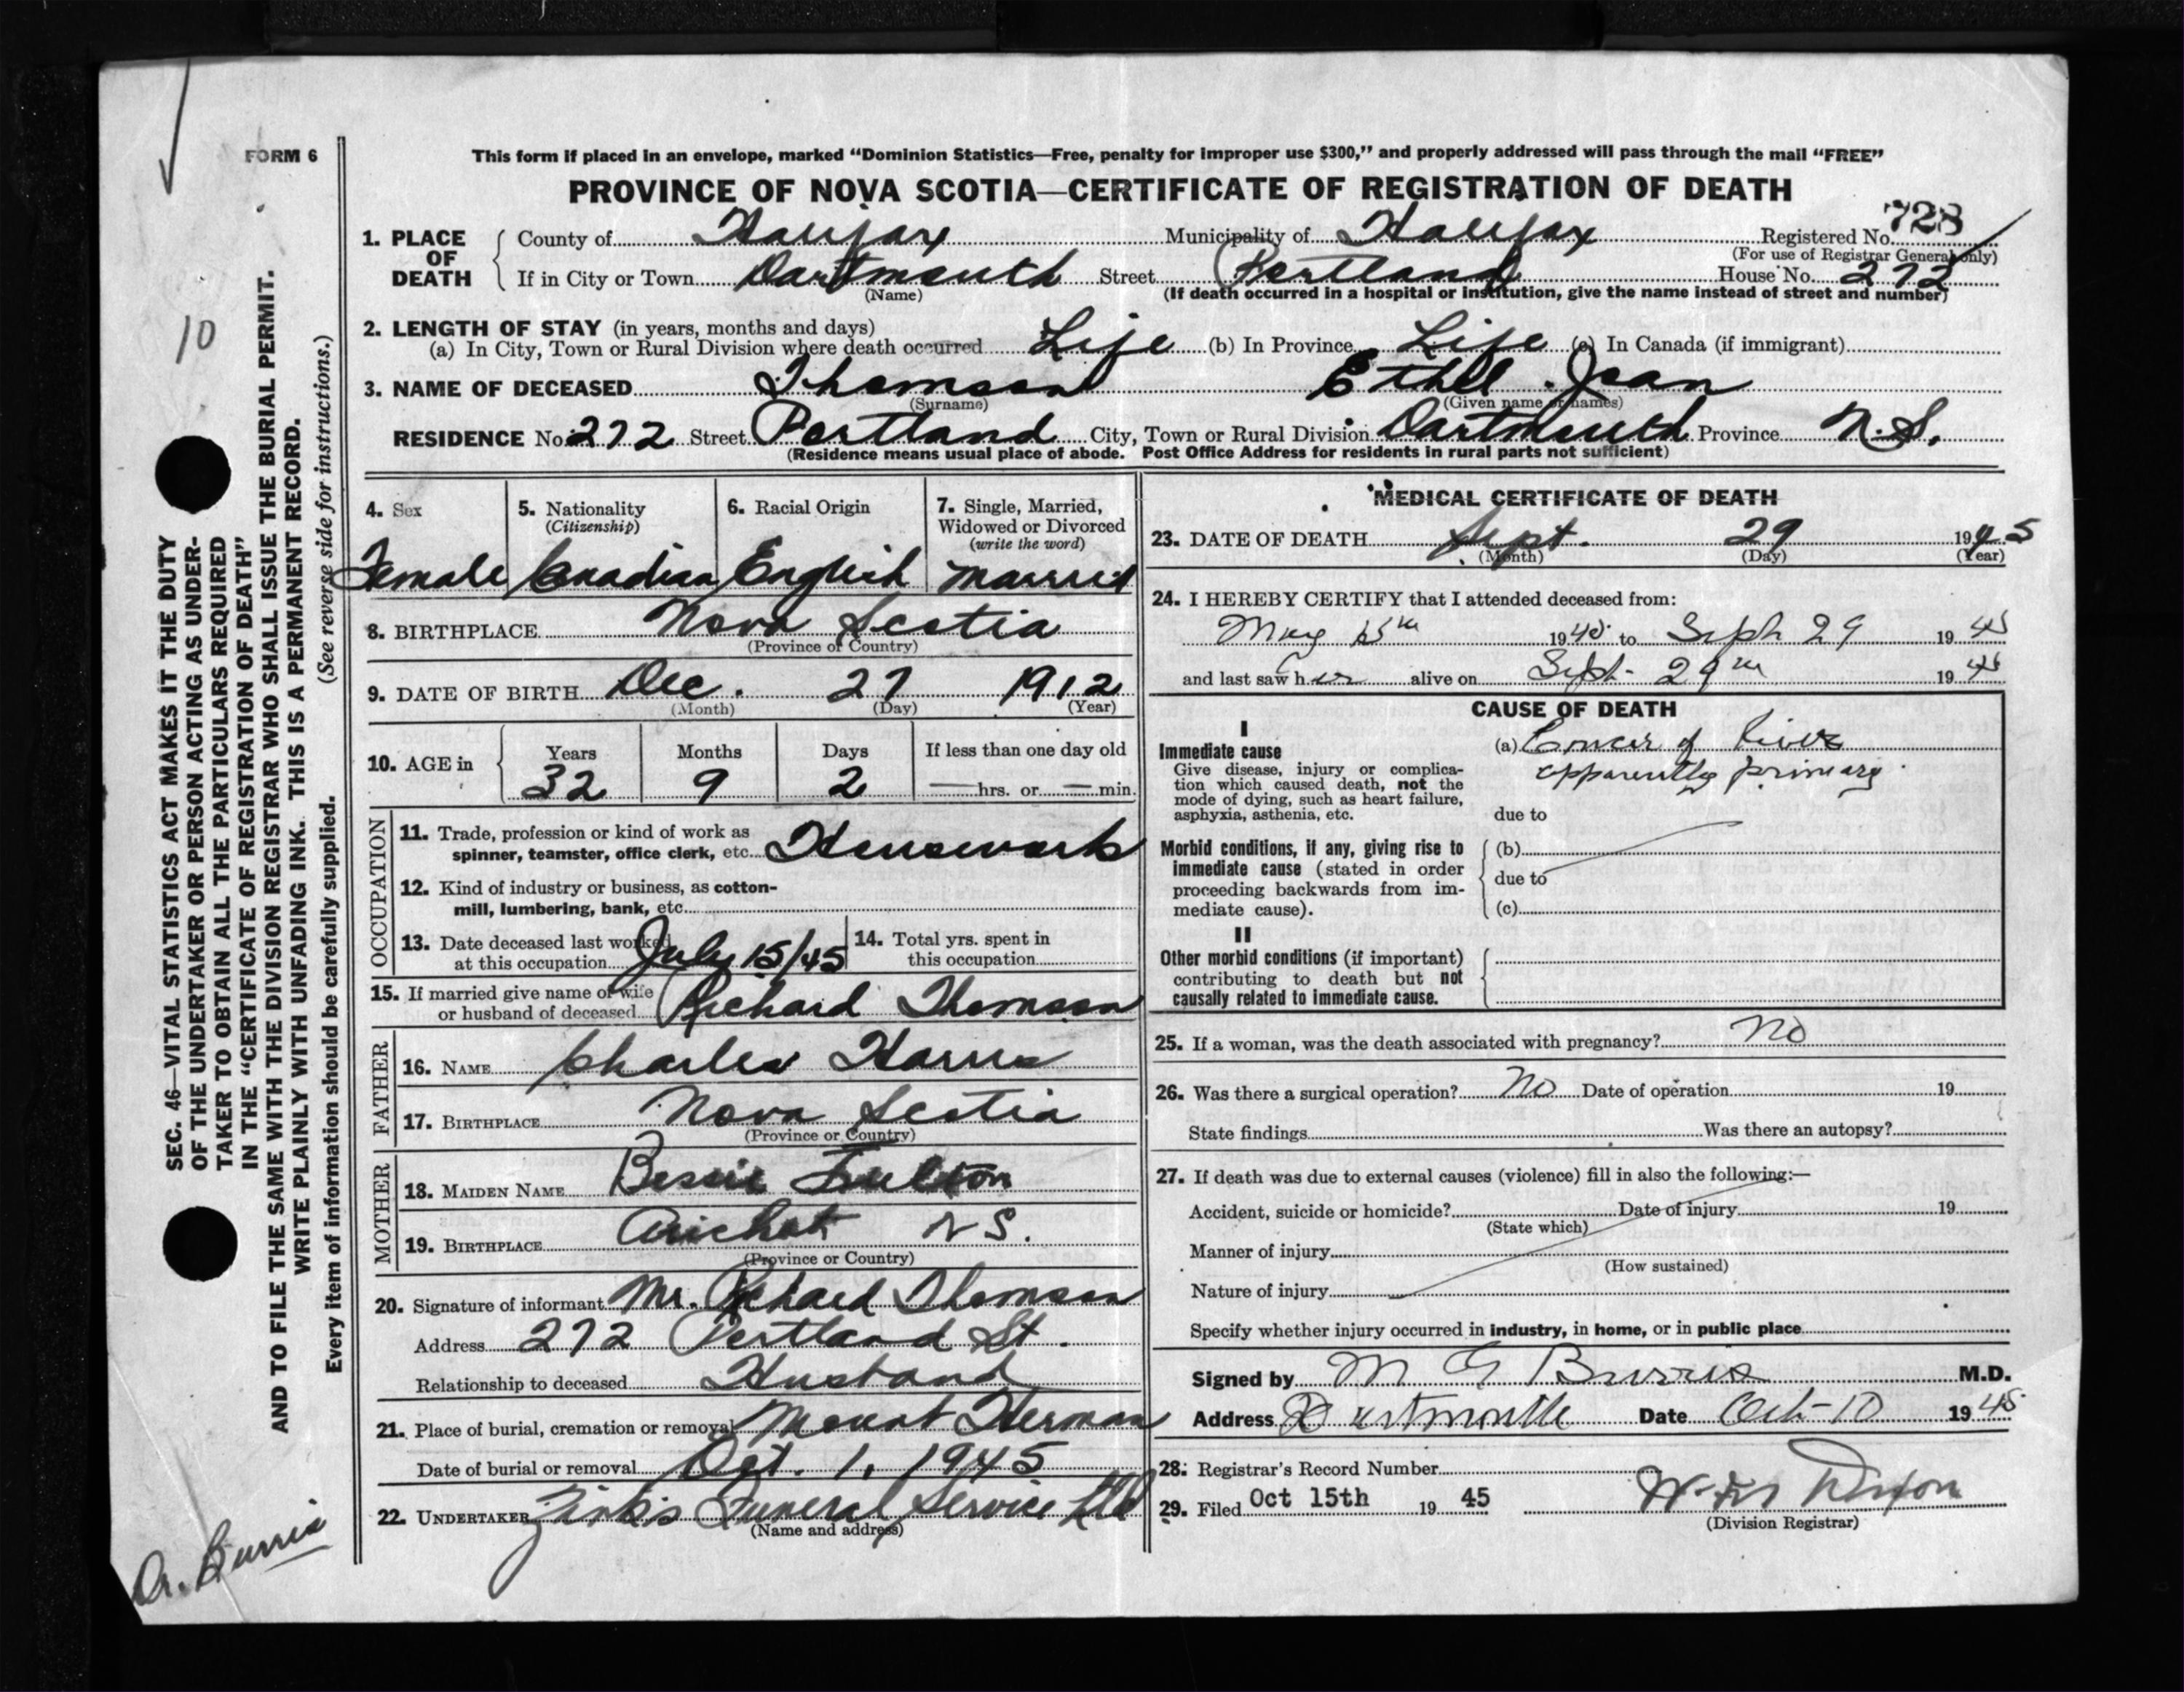 FORM 6
This form if placed in an envelope, marked “Dominion Statistics—Free, penalty for improper use $300,” and properly addressed will pass through the mail “FREE”
PROVINCE OF NOVA SCOTIA—CERTIFICATE OF REGISTRATION OF DEATH
728
1. PLACE OF DEATH County of Halifax Municipality of Halifax Registered No.
(For use of Registrar General only)
If in City or Town Dartmouth Street Portland House No. 272
(Name) (If death occurred in a hospital or institution, give the name instead of street and number)
2. LENGTH OF STAY (in years, months and days)
(a) In City, Town or Rural Division where death occurred Life (b) In Province Life (c) In Canada (if immigrant)
3. NAME OF DECEASED Thomson Ethel Jean
(Surname) (Given name or names)
RESIDENCE No. 272 Street Portland City, Town or Rural Division Dartmouth Province N.S.
(Residence means usual place of abode. Post Office Address for residents in rural parts not sufficient)
4. Sex 5. Nationality (Citizenship) 6. Racial Origin 7. Single, Married, Widowed or Divorced (write the word)
Female Canadian English Married
8. BIRTHPLACE Nova Scotia
(Province or Country)
9. DATE OF BIRTH Dec. 27 1912
(Month) (Day) (Year)
10. AGE in Years Months Days If less than one day old
32 9 2 — hrs. or — min.
OCCUPATION
11. Trade, profession or kind of work as
spinner, teamster, office clerk, etc. Housework
12. Kind of industry or business, as cotton-
mill, lumbering, bank, etc.
13. Date deceased last worked
at this occupation July 15/45
14. Total yrs. spent in
this occupation
15. If married give name of wife
or husband of deceased Richard Thomson
FATHER
16. NAME Charles Harris
17. BIRTHPLACE Nova Scotia
(Province or Country)
MOTHER
18. MAIDEN NAME Bessie Fulton
19. BIRTHPLACE Arichat N S.
(Province or Country)
20. Signature of informant Mr. Richard Thomson
Address 272 Portland St.
Relationship to deceased Husband
21. Place of burial, cremation or removal Mount Herman
Date of burial or removal Oct. 1, 1945
22. UNDERTAKER Zink's Funeral Service Ltd
(Name and address)
MEDICAL CERTIFICATE OF DEATH
23. DATE OF DEATH Sept. 29 1945
(Month) (Day) (Year)
24. I HEREBY CERTIFY that I attended deceased from:
May 15th 1945 to Sept 29 1945
and last saw her alive on Sept. 29th 1945
CAUSE OF DEATH
I
Immediate cause
Give disease, injury or complica-
tion which caused death, not the
mode of dying, such as heart failure,
asphyxia, asthenia, etc.
(a) Cancer of Liver
apparently primary.
due to
Morbid conditions, if any, giving rise to
immediate cause (stated in order
proceeding backwards from im-
mediate cause).
(b)
due to
(c)
II
Other morbid conditions (if important)
contributing to death but not
causally related to immediate cause.
25. If a woman, was the death associated with pregnancy? No
26. Was there a surgical operation? No Date of operation 19
State findings Was there an autopsy?
27. If death was due to external causes (violence) fill in also the following:—
Accident, suicide or homicide? Date of injury 19
(State which)
Manner of injury
(How sustained)
Nature of injury
Specify whether injury occurred in industry, in home, or in public place
Signed by M G Burris M.D.
Address Dartmouth Date Oct-10 1945
28. Registrar's Record Number
29. Filed Oct 15th 19 45
(Division Registrar)
10
SEC. 46—VITAL STATISTICS ACT MAKES IT THE DUTY
OF THE UNDERTAKER OR PERSON ACTING AS UNDER-
TAKER TO OBTAIN ALL THE PARTICULARS REQUIRED
IN THE “CERTIFICATE OF REGISTRATION OF DEATH”
AND TO FILE THE SAME WITH THE DIVISION REGISTRAR WHO SHALL ISSUE THE BURIAL PERMIT.
WRITE PLAINLY WITH UNFADING INK. THIS IS A PERMANENT RECORD.
Every item of information should be carefully supplied. (See reverse side for instructions.)
Dr. Burris